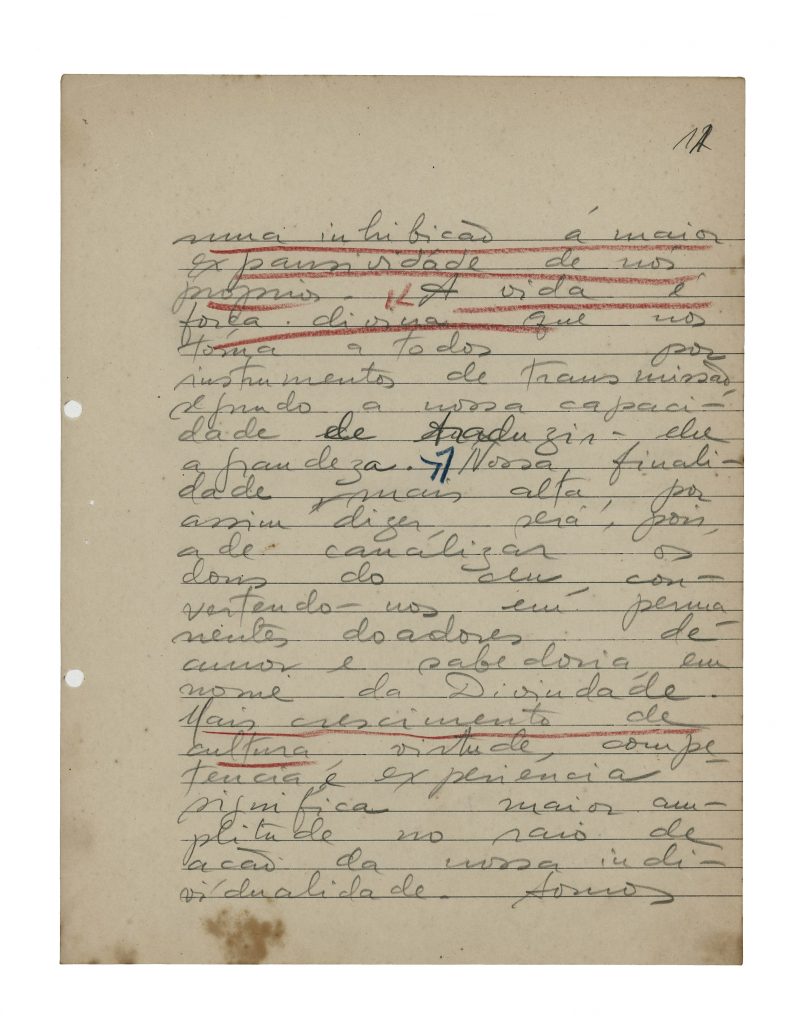 numa inhibicão á maior
expansividade de nós
próprios. A vida é
força divina que nos
toma a todos por
instrumentos de transmissão,
segundo a nossa capaci-
dade de traduzir-lhe
a grandeza. Nossa finali-
dade mais alta, por
assim dizer, será, pois,
a de canalizar os
dons do céu, con-
vertendo-nos em perma
nentes doadores de
amor e sabedoria, em
nome da Divindade.
Mais crescimento de
cultura, virtude, compe-
tencia e experiencia
significa maior am-
plitude no raio de
acão da nossa indi-
vidualidade. Somos